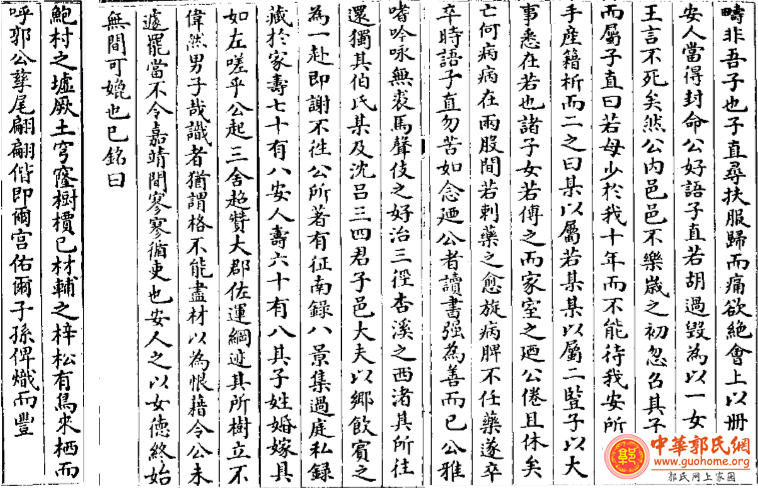 疇非吾子也子直尋扶服歸而痛欲絶會上以册
安人當得封命公好語子直若胡過毁為以一女
王言不死矣然公内邑邑不樂歲之初忽召其子
而屬子直曰若母少於我十年而不能待我安所
手産籍析而二之曰某以屬若某某以屬二豎子以大
事悉在若也諸子女若傅之而家室之廼公倦且休矣
亡何病病在兩股間若刺藥之愈旋病脾不任藥遂卒
卒時語子直勿苦如念廼公者讀書强為善而已公雅
嗜吟咏無裘馬聲伎之好治三徑杏溪之西渚其所往
還獨其伯氏某及沈吕三四君子邑大夫以鄉飲賓之
為一赴即謝不往公所著有征南錄八景集過庭私録
藏於家壽七十有八安人壽六十有八其子姓婚嫁具
如左嗟乎公起三舍趋贊大郡佐運綱迹其所樹立不
偉然男子哉識者猶謂格不能盡材以為恨藉令公未
遽罷當不令嘉靖間寥寥循吏也安人之以女德終始
無間可媲也已銘曰
鮑村之墟厥土穹窿樹檟已材輔之梓松有鳥來栖而
呼郭公孽尾翩翩偕即爾宫佑爾子孫俾熾而豐
中華郭氏網
www.guohome.org
郭氏网上家园